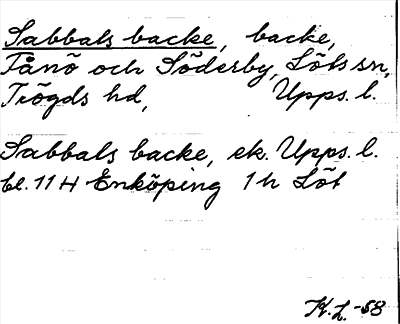 Sabbals backe, backe,
Tånö och Söderby, Löts sn,
Trögds hd, Upps. l.
Sabbals backe, ek. Upps. l.
bl. 11 H Enköping 1 h Löt
K.L.-58